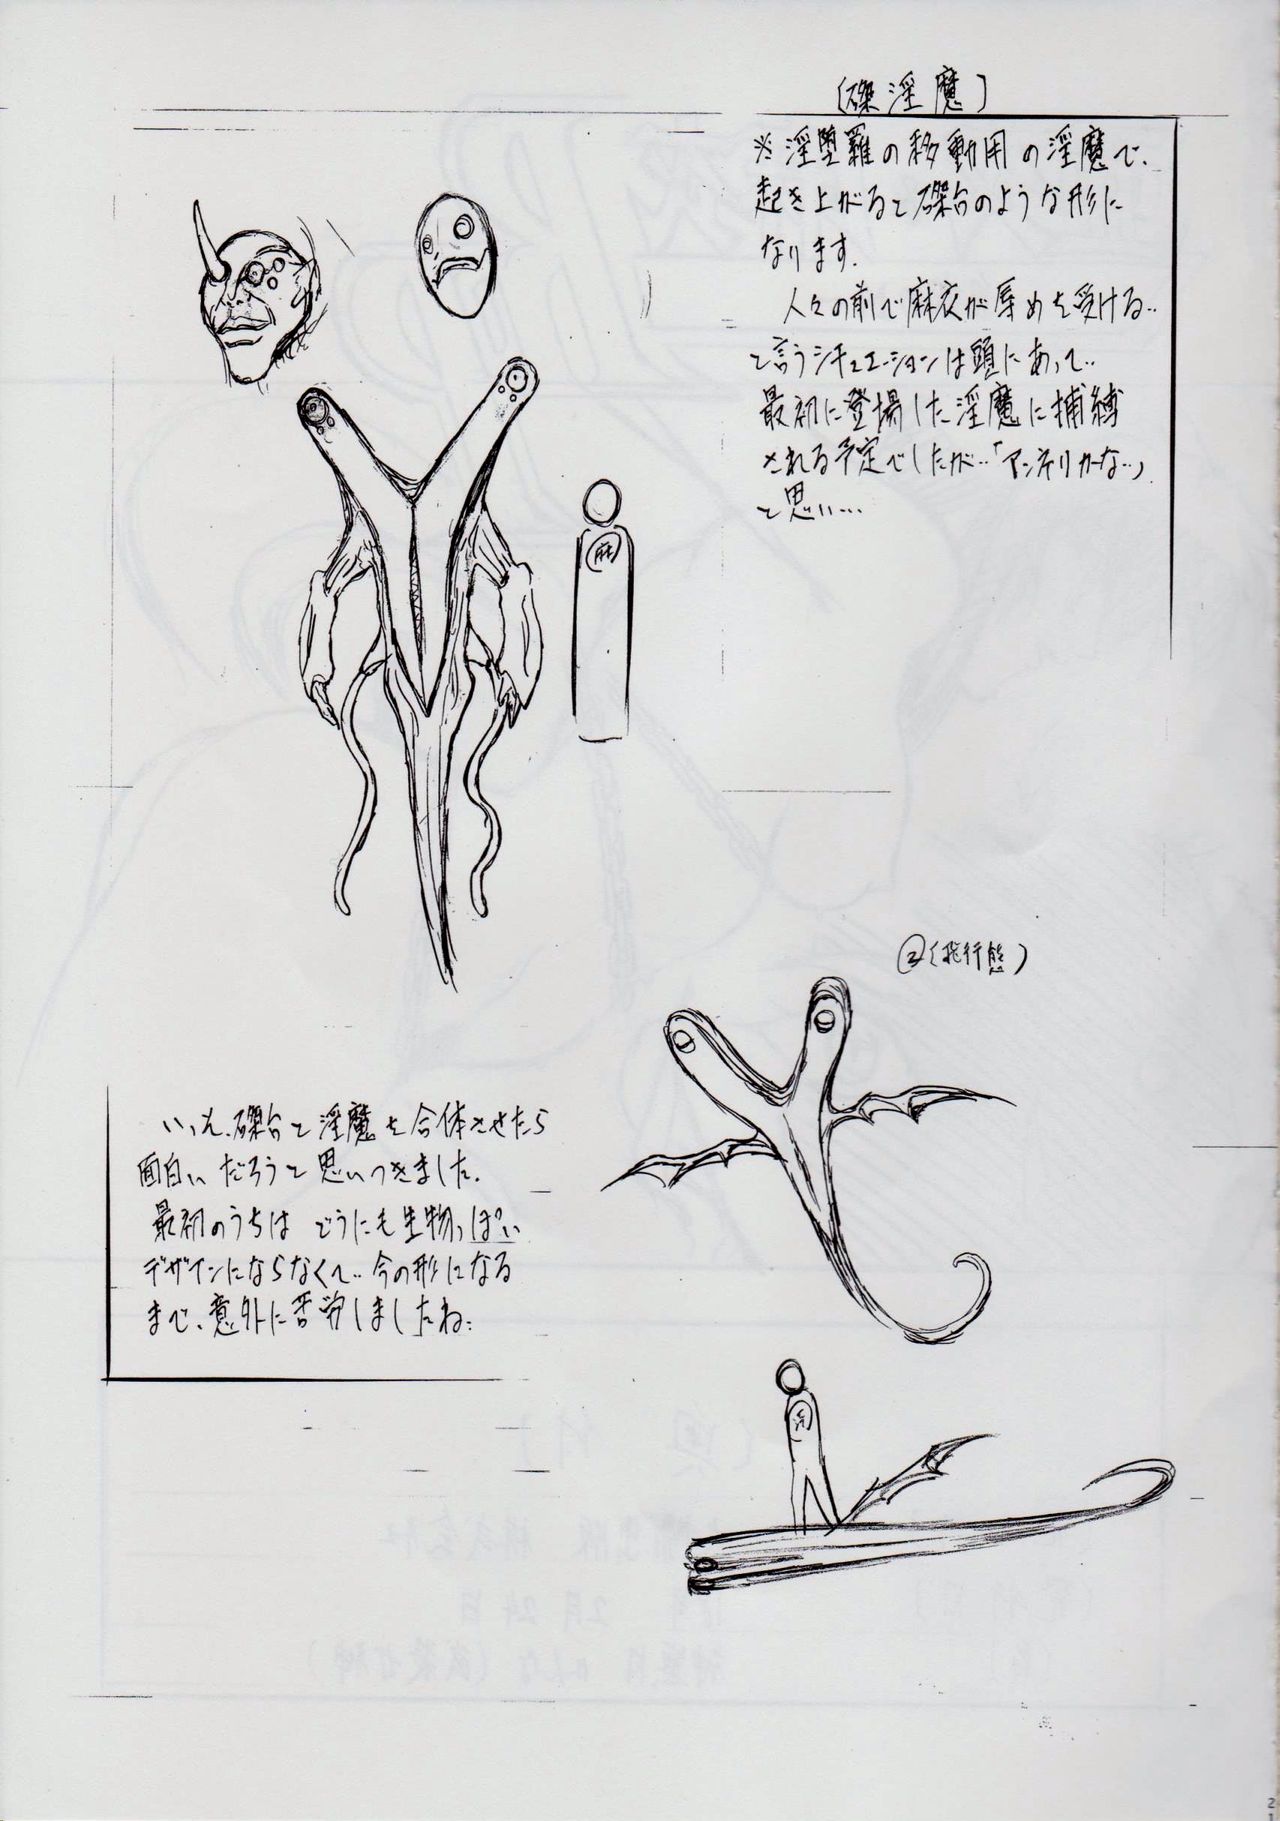 (磔淫魔)
※淫堕羅の移動用の淫魔で、
起き上がると磔台のような形に
なります.
人々の前で麻衣が辱めを受ける‥
と言うシチュエーションは頭にあって‥
最初に登場した淫魔に捕縛
される予定でしたが‥「アンチリカーな‥」
と思い…
麻
②(飛行態)
いっそ、磔台と淫魔を合体させたら
面白いだろうと思いつきました.
最初のうちは どうにも生物っぽい
デザインにならなくて‥今の形になる
まで、意外に苦労しましたね.
淫
21